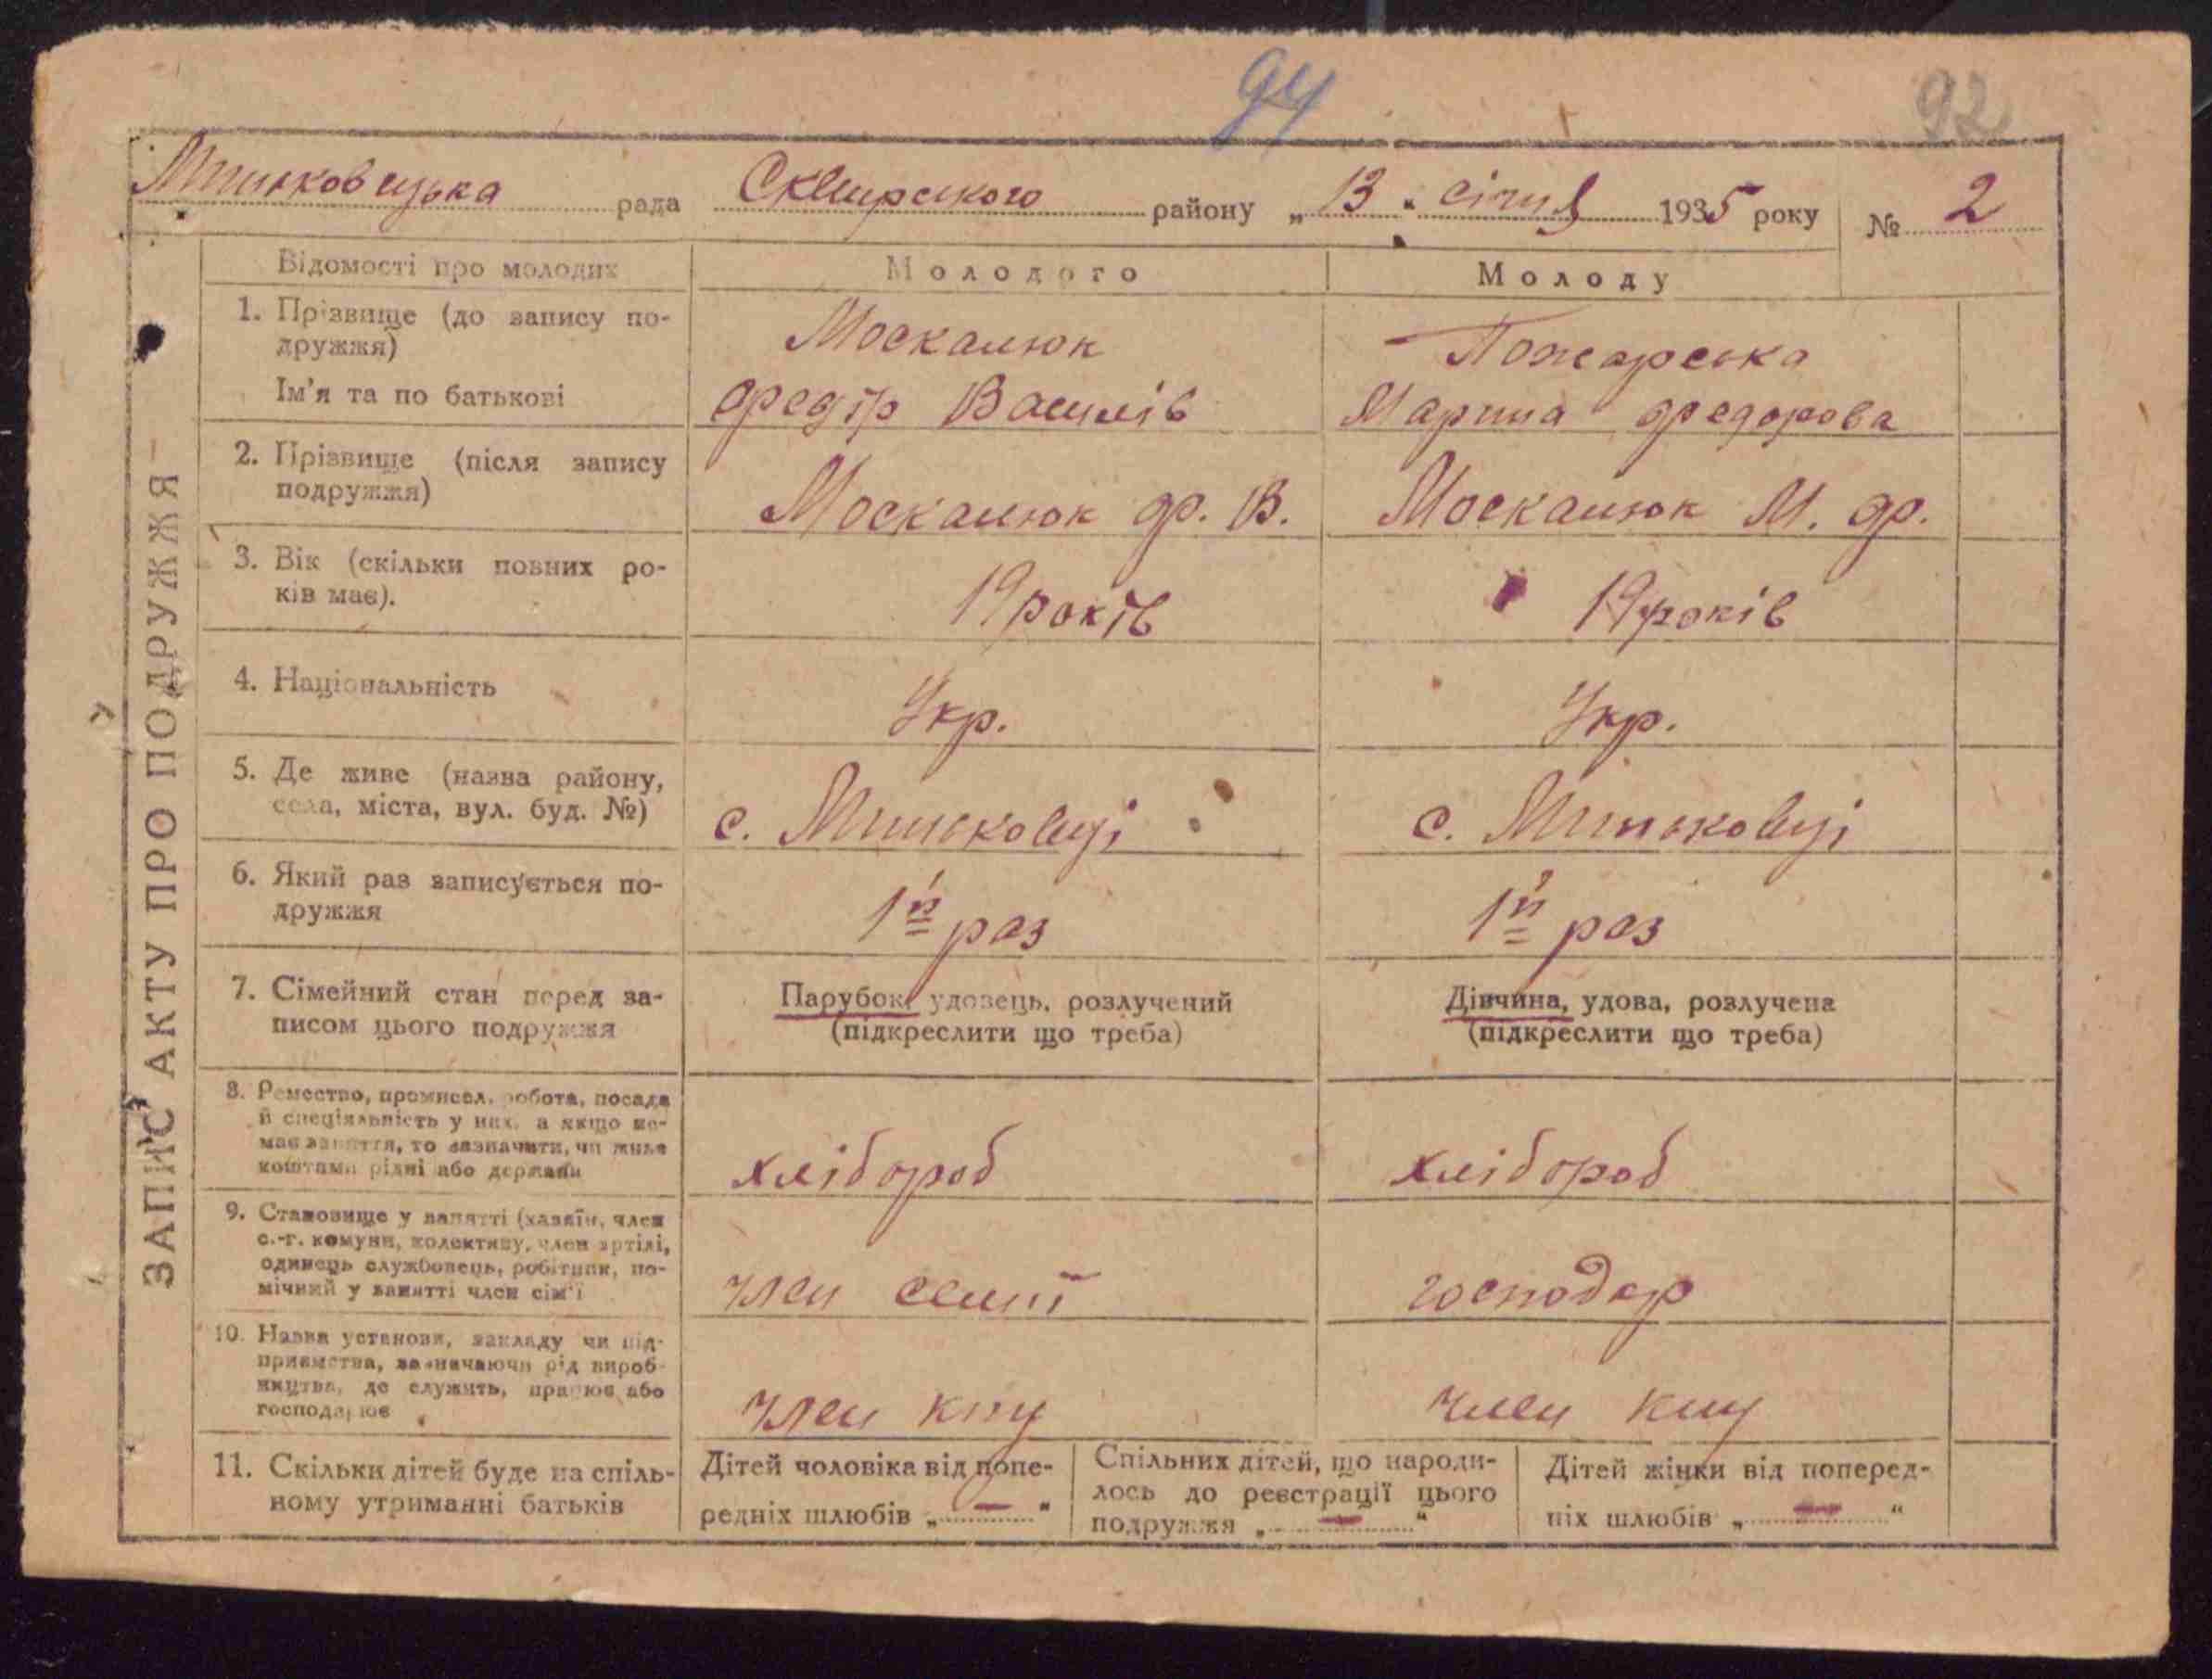 94
92
Миньковецька рада Сквирського району „13“ січня 1935 року № 2
ЗАПИС АКТУ ПРО ПОДРУЖЖЯ
Відомості про молодих
Молодого
Молоду
1. Прізвище (до запису по-
дружжя)
Ім'я та по батькові
Москалюк
Федір Василів
Пожарська
Марина Федорова
2. Прізвище (після запису
подружжя)
Москалюк Ф. В.
Москалюк М. Ф.
3. Вік (скільки повних ро-
ків має).
19 років
19 років
4. Національність
Укр.
Укр.
5. Де живе (назва району,
села, міста, вул. буд. №)
с. Миньковці
с. Миньковці
6. Який раз записується по-
дружжя
1й раз
1й раз
7. Сімейний стан перед за-
писом цього подружжя
Парубок, удовець, розлучений
(підкреслити що треба)
Дівчина, удова, розлучена
(підкреслити що треба)
8. Ремество, промисел, робота, посада
й спеціяльність у них, а якщо не-
має заняття, то зазначити, чи живе
коштами рідні або держави
хлібороб
хлібороб
9. Становище у занятті (хазяїн, член
с.-г. комуни, колективу, член артілі,
одинець службовець, робітник, по-
мічний у занятті член сім'ї
член семії
господар
10. Назва установи, закладу чи під-
приємства, зазначаючи рід вироб-
ництва, де служить, працює або
господарює
член
член
11. Скільки дітей буде на спіль-
ному утриманні батьків
Дітей чоловіка від попе-
редніх шлюбів „—“
Спільних дітей, що народи-
лось до реєстрації цього
подружжя „—“
Дітей жінки від поперед-
ніх шлюбів „—“